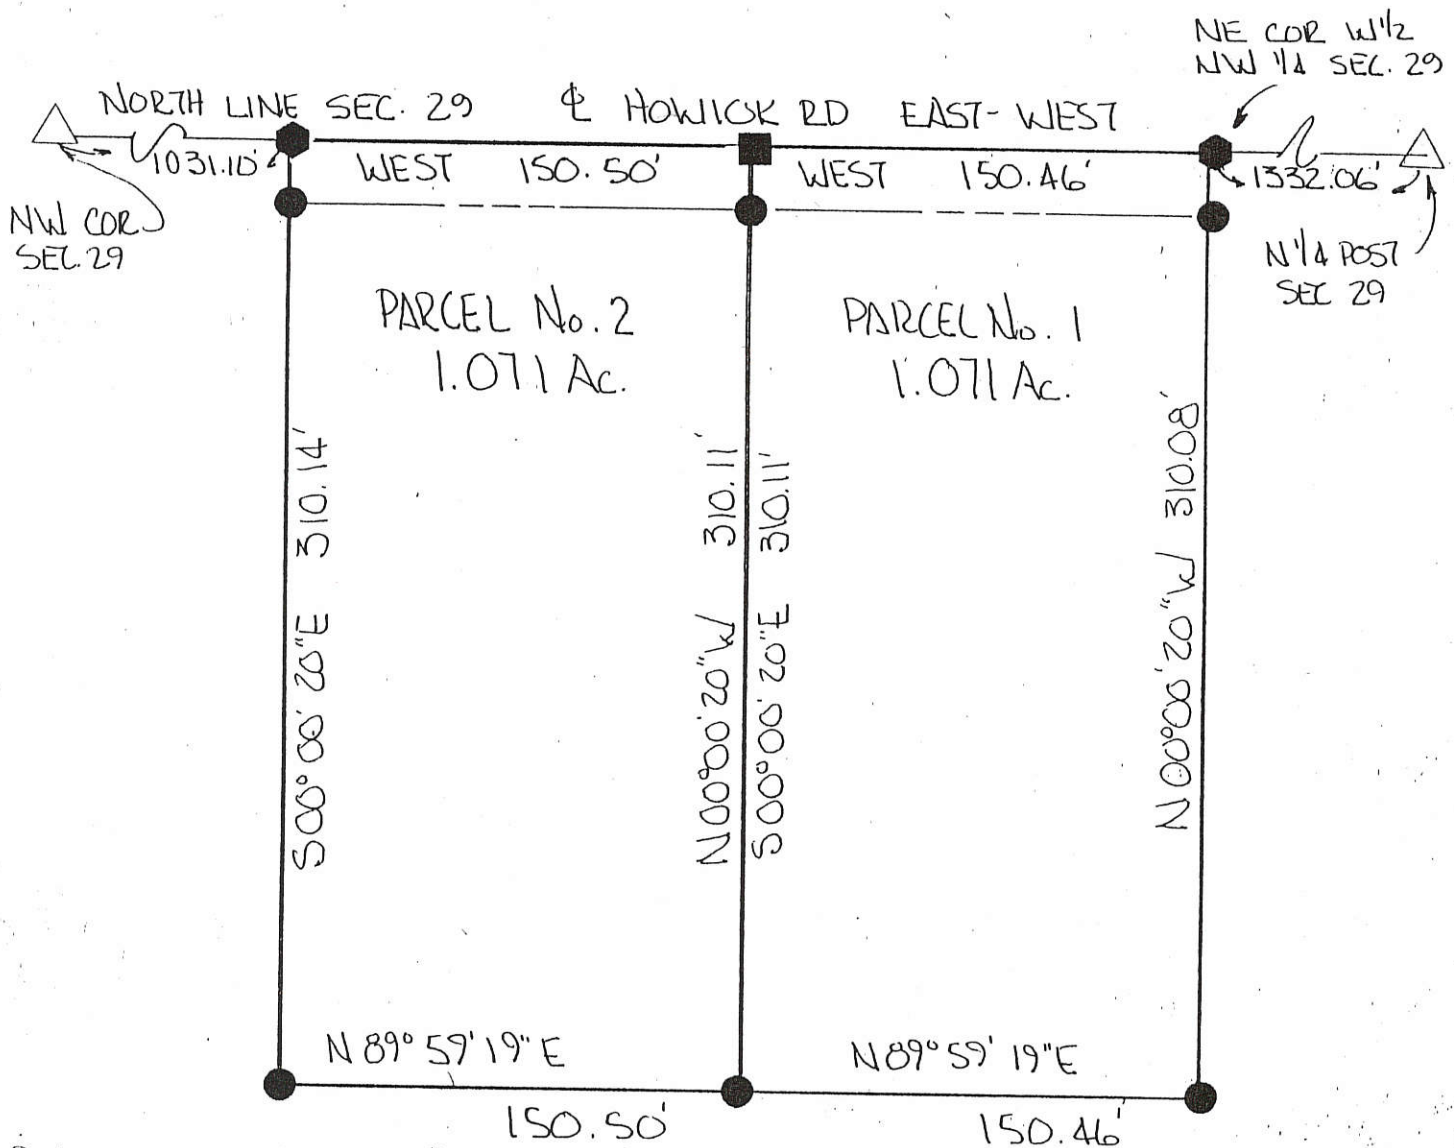 NE COR W 1/2
NW 1/4 SEC. 29
NORTH LINE SEC. 29 ℄ HOWICK RD EAST-WEST
1031.10'
WEST 150.50'
WEST 150.46'
1332.06'
NW COR
SEC. 29
N 1/4 POST
SEC 29
PARCEL No. 2
1.071 Ac.
PARCEL No. 1
1.071 Ac.
S 00° 00' 20" E 310.14'
N 00° 00' 20" W 310.11'
S 00° 00' 20" E 310.11'
N 00° 00' 20" W 310.08'
N 89° 59' 19" E
N 89° 59' 19" E
150.50'
150.46'